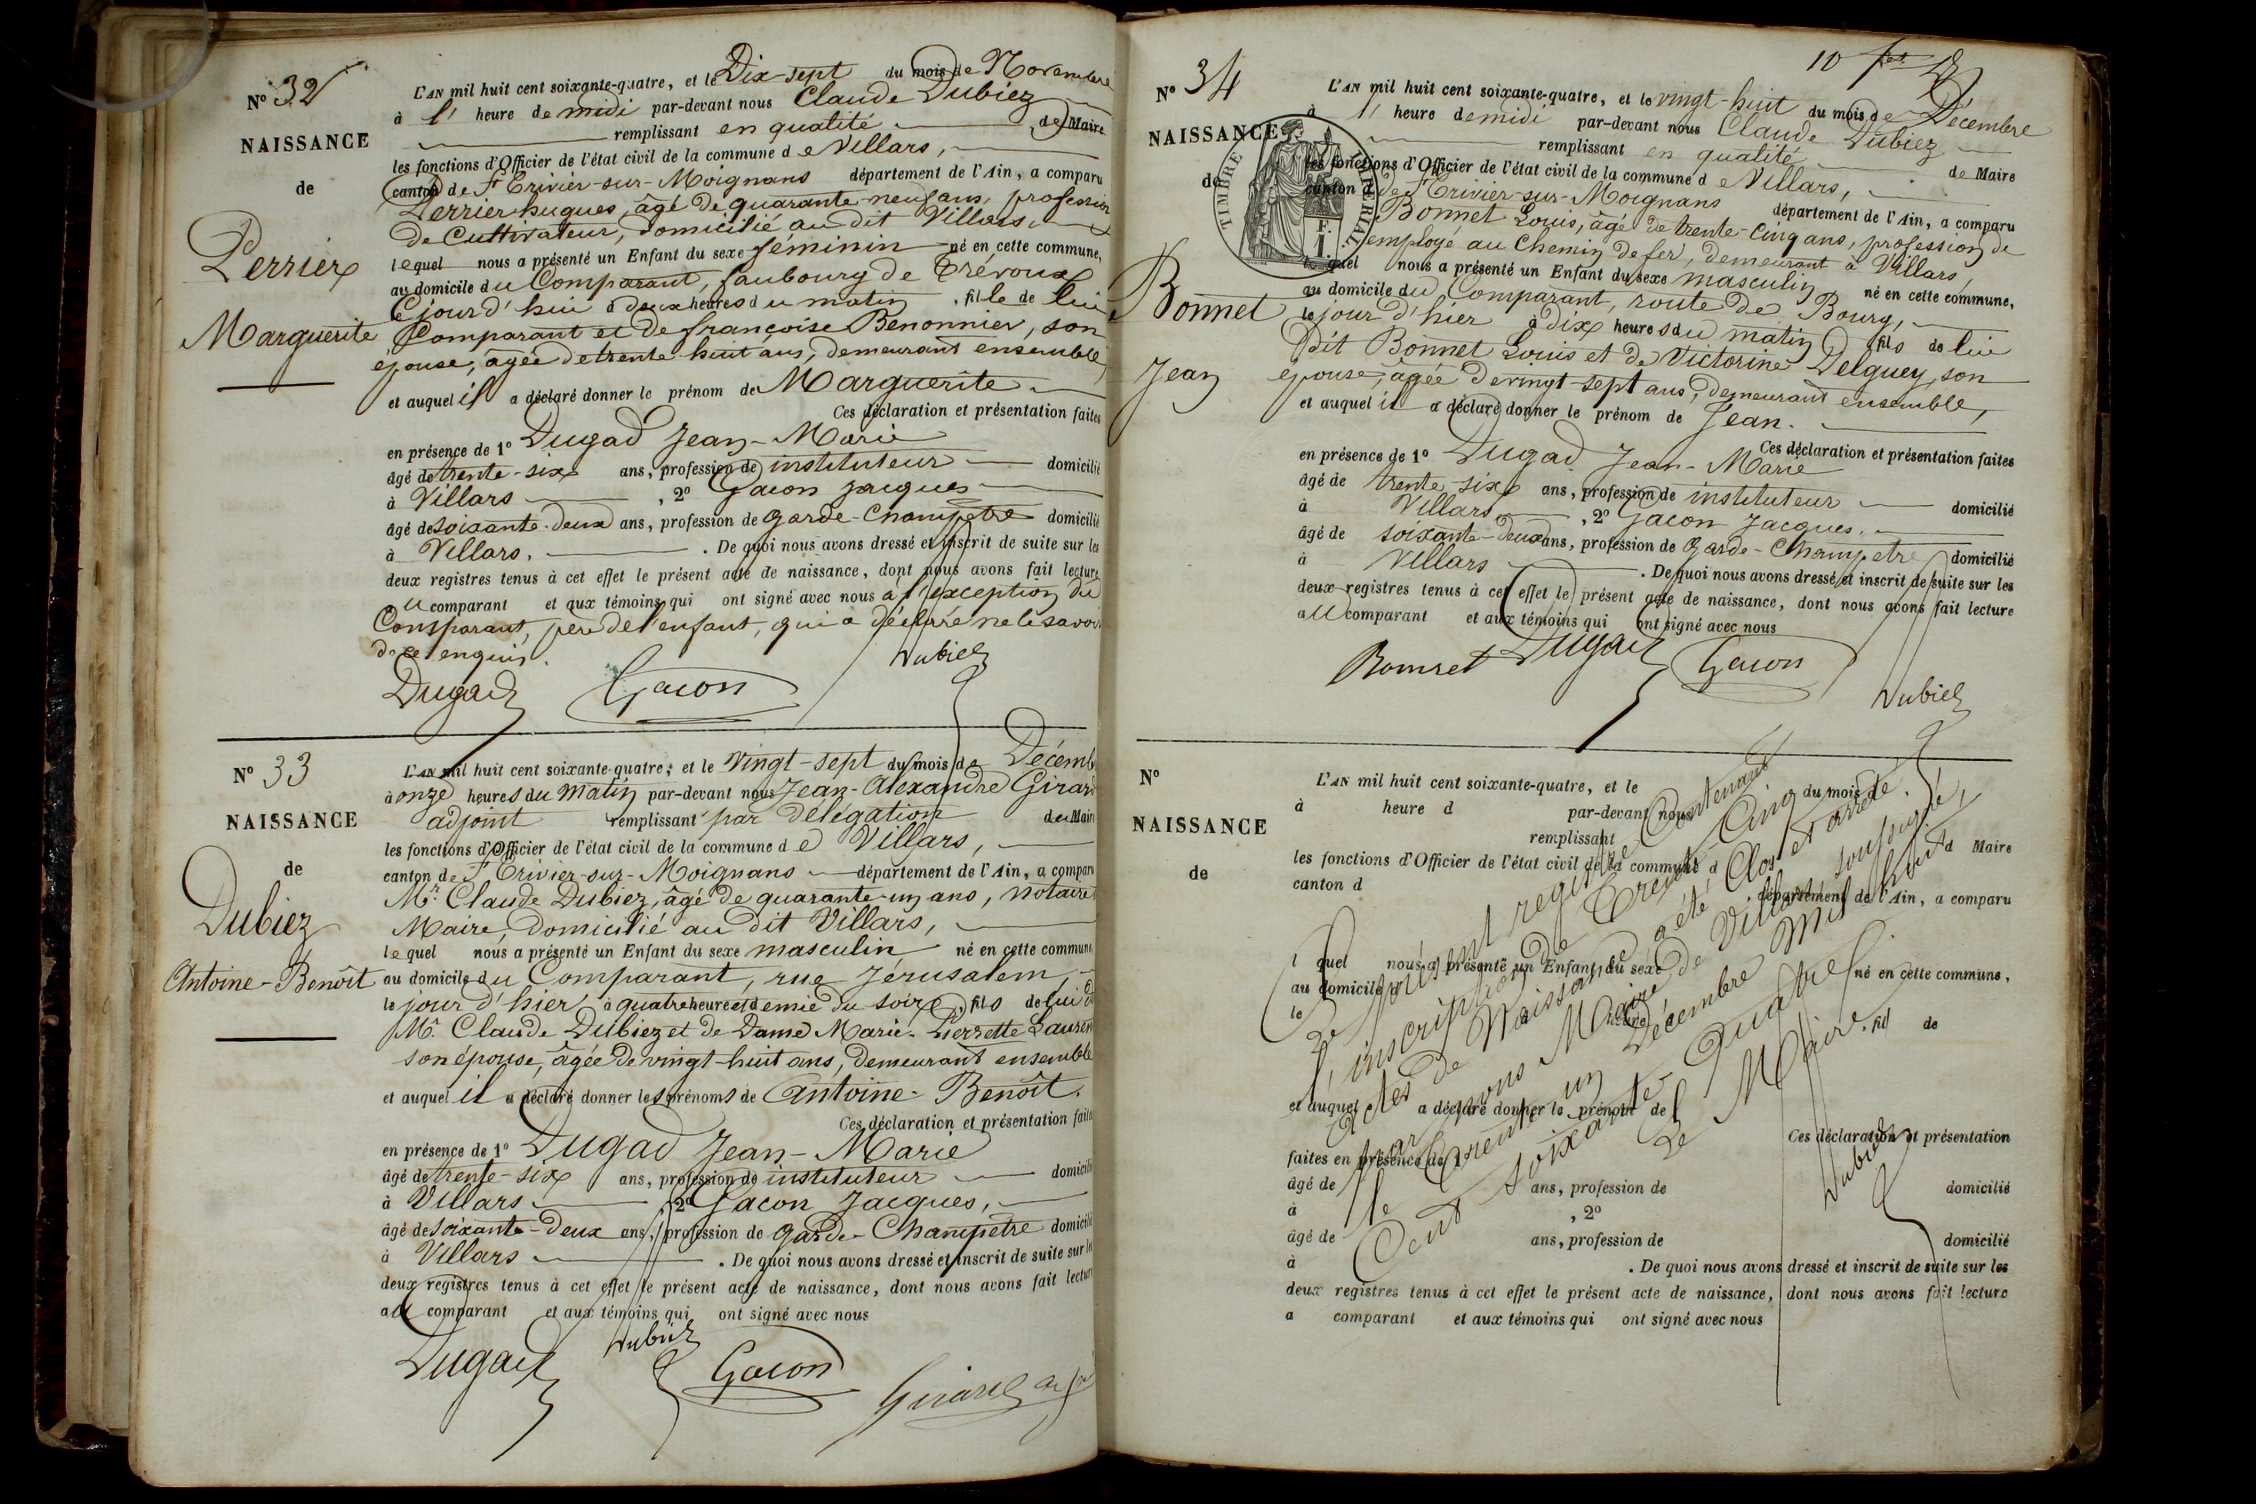 N° 32
NAISSANCE
de
Perrier
Marguerite
L'AN mil huit cent soixante-quatre, et le Dix-sept du mois de Novembre
à l' heure de midi par-devant nous Claude Dubiez
remplissant en qualité de Maire
les fonctions d'Officier de l'état civil de la commune de Villars,
canton de St Trivier-sur-Moignans département de l'Ain, a comparu
Perrier hugues, âgé de quarante-neuf ans, profession
de Cultivateur, domicilié au dit Villars,
lequel nous a présenté un Enfant du sexe féminin né en cette commune,
au domicile du Comparant, faubourg de Trévoux
Cejourd'hui à deux heures du matin, fille de lui
Comparant et de françoise Benonnier, son
épouse, âgée de trente-huit ans, demeurant ensemble,
et auquel il a déclaré donner le prénom de Marguerite
Ces déclaration et présentation faites
en présence de 1° Dugad Jean-Marie
âgé de trente-six ans, profession de instituteur domicilié
à Villars, 2° Gacon Jacques
âgé de soixante-deux ans, profession de garde-Champêtre domicilié
à Villars. De quoi nous avons dressé et inscrit de suite sur les
deux registres tenus à cet effet le présent acte de naissance, dont nous avons fait lecture
au comparant et aux témoins qui ont signé avec nous à l'exception du
Comparant, père de l'enfant, qui a déclaré ne le savoir
de ce enquis.
Dugad Gacon Dubiez
N° 33
NAISSANCE
de
Dubiez
Antoine-Benoît
L'AN mil huit cent soixante-quatre, et le vingt-sept du mois de Décemb
à onze heures du matin par-devant nous Jean-Alexandre Girard
adjoint remplissant par délégation du Maire
les fonctions d'Officier de l'état civil de la commune de Villars,
canton de St Trivier-sur-Moignans département de l'Ain, a comparu
Mr. Claude Dubiez, âgé de quarante-un ans, notaire
Maire, domicilié au dit Villars,
lequel nous a présenté un Enfant du sexe masculin né en cette commune
au domicile du Comparant, rue Jérusalem,
le jour d'hier à quatre heures et demie du soir, fils de lui d
Mr. Claude Dubiez et de Dame Marie-Pierrette Laurent
son épouse, âgée de vingt-huit ans, demeurant ensemble
et auquel il a déclaré donner les prénoms de Antoine-Benoît.
Ces déclaration et présentation faites
en présence de 1° Dugad Jean-Marie
âgé de trente-six ans, profession de instituteur domicilié
à Villars, 2° Gacon Jacques,
âgé de soixante-deux ans, profession de garde-Champêtre domicilié
à Villars. De quoi nous avons dressé et inscrit de suite sur les
deux registres tenus à cet effet le présent acte de naissance, dont nous avons fait lecture
au comparant et aux témoins qui ont signé avec nous
Dugad Dubiez Gacon Girard
N° 34
NAISSANCE
de
Bonnet
Jean
TIMBRE IMPÉRIAL.
L'AN mil huit cent soixante-quatre, et le vingt-huit du mois de Décembre
à l' heure de midi par-devant nous Claude Dubiez
remplissant en qualité de Maire
les fonctions d'Officier de l'état civil de la commune de Villars,
canton de St Trivier-sur-Moignans département de l'Ain, a comparu
Bonnet Louis, âgé de trente-cinq ans, profession de
employé au Chemin de fer, demeurant à Villars,
lequel nous a présenté un Enfant du sexe masculin né en cette commune,
au domicile du Comparant, route de Bourg,
le jour d'hier à dix heures du matin fils de lui
dit Bonnet Louis et de Victorine Delguey, son
épouse, âgée de vingt-sept ans, demeurant ensemble,
et auquel il a déclaré donner le prénom de Jean.
Ces déclaration et présentation faites
en présence de 1° Dugad Jean-Marie
âgé de trente-six ans, profession de instituteur domicilié
à Villars, 2° Gacon Jacques.
âgé de soixante-deux ans, profession de garde-Champetre domicilié
à Villars. De quoi nous avons dressé et inscrit de suite sur les
deux registres tenus à cet effet le présent acte de naissance, dont nous avons fait lecture
au comparant et aux témoins qui ont signé avec nous
Bonnet Dugad Gacon Dubiez
N°
NAISSANCE
de
L'AN mil huit cent soixante-quatre, et le du mois d
à heure d par-devant nous
remplissant d Maire
les fonctions d'Officier de l'état civil de la commune d
canton d département de l'Ain, a comparu
l quel nous a présenté un Enfant du sexe né en cette commune,
au domicile d
le à heure fil de
et auquel a déclaré donner le prénom de
Ces déclaration et présentation
faites en présence de 1°
âgé de ans, profession de domicilié
à , 2°
âgé de ans, profession de domicilié
à . De quoi nous avons dressé et inscrit de suite sur les
deux registres tenus à cet effet le présent acte de naissance, dont nous avons fait lecture
a comparant et aux témoins qui ont signé avec nous
Le présent registre Contenant
l'inscription de Trente-Cinq
Actes de Naissance, a été Clos et arrêté.
par nous Maire de Villars, soussigné,
le trente-un Décembre Mil huit
Cent soixante-Quatre.
Le Maire
Dubiez